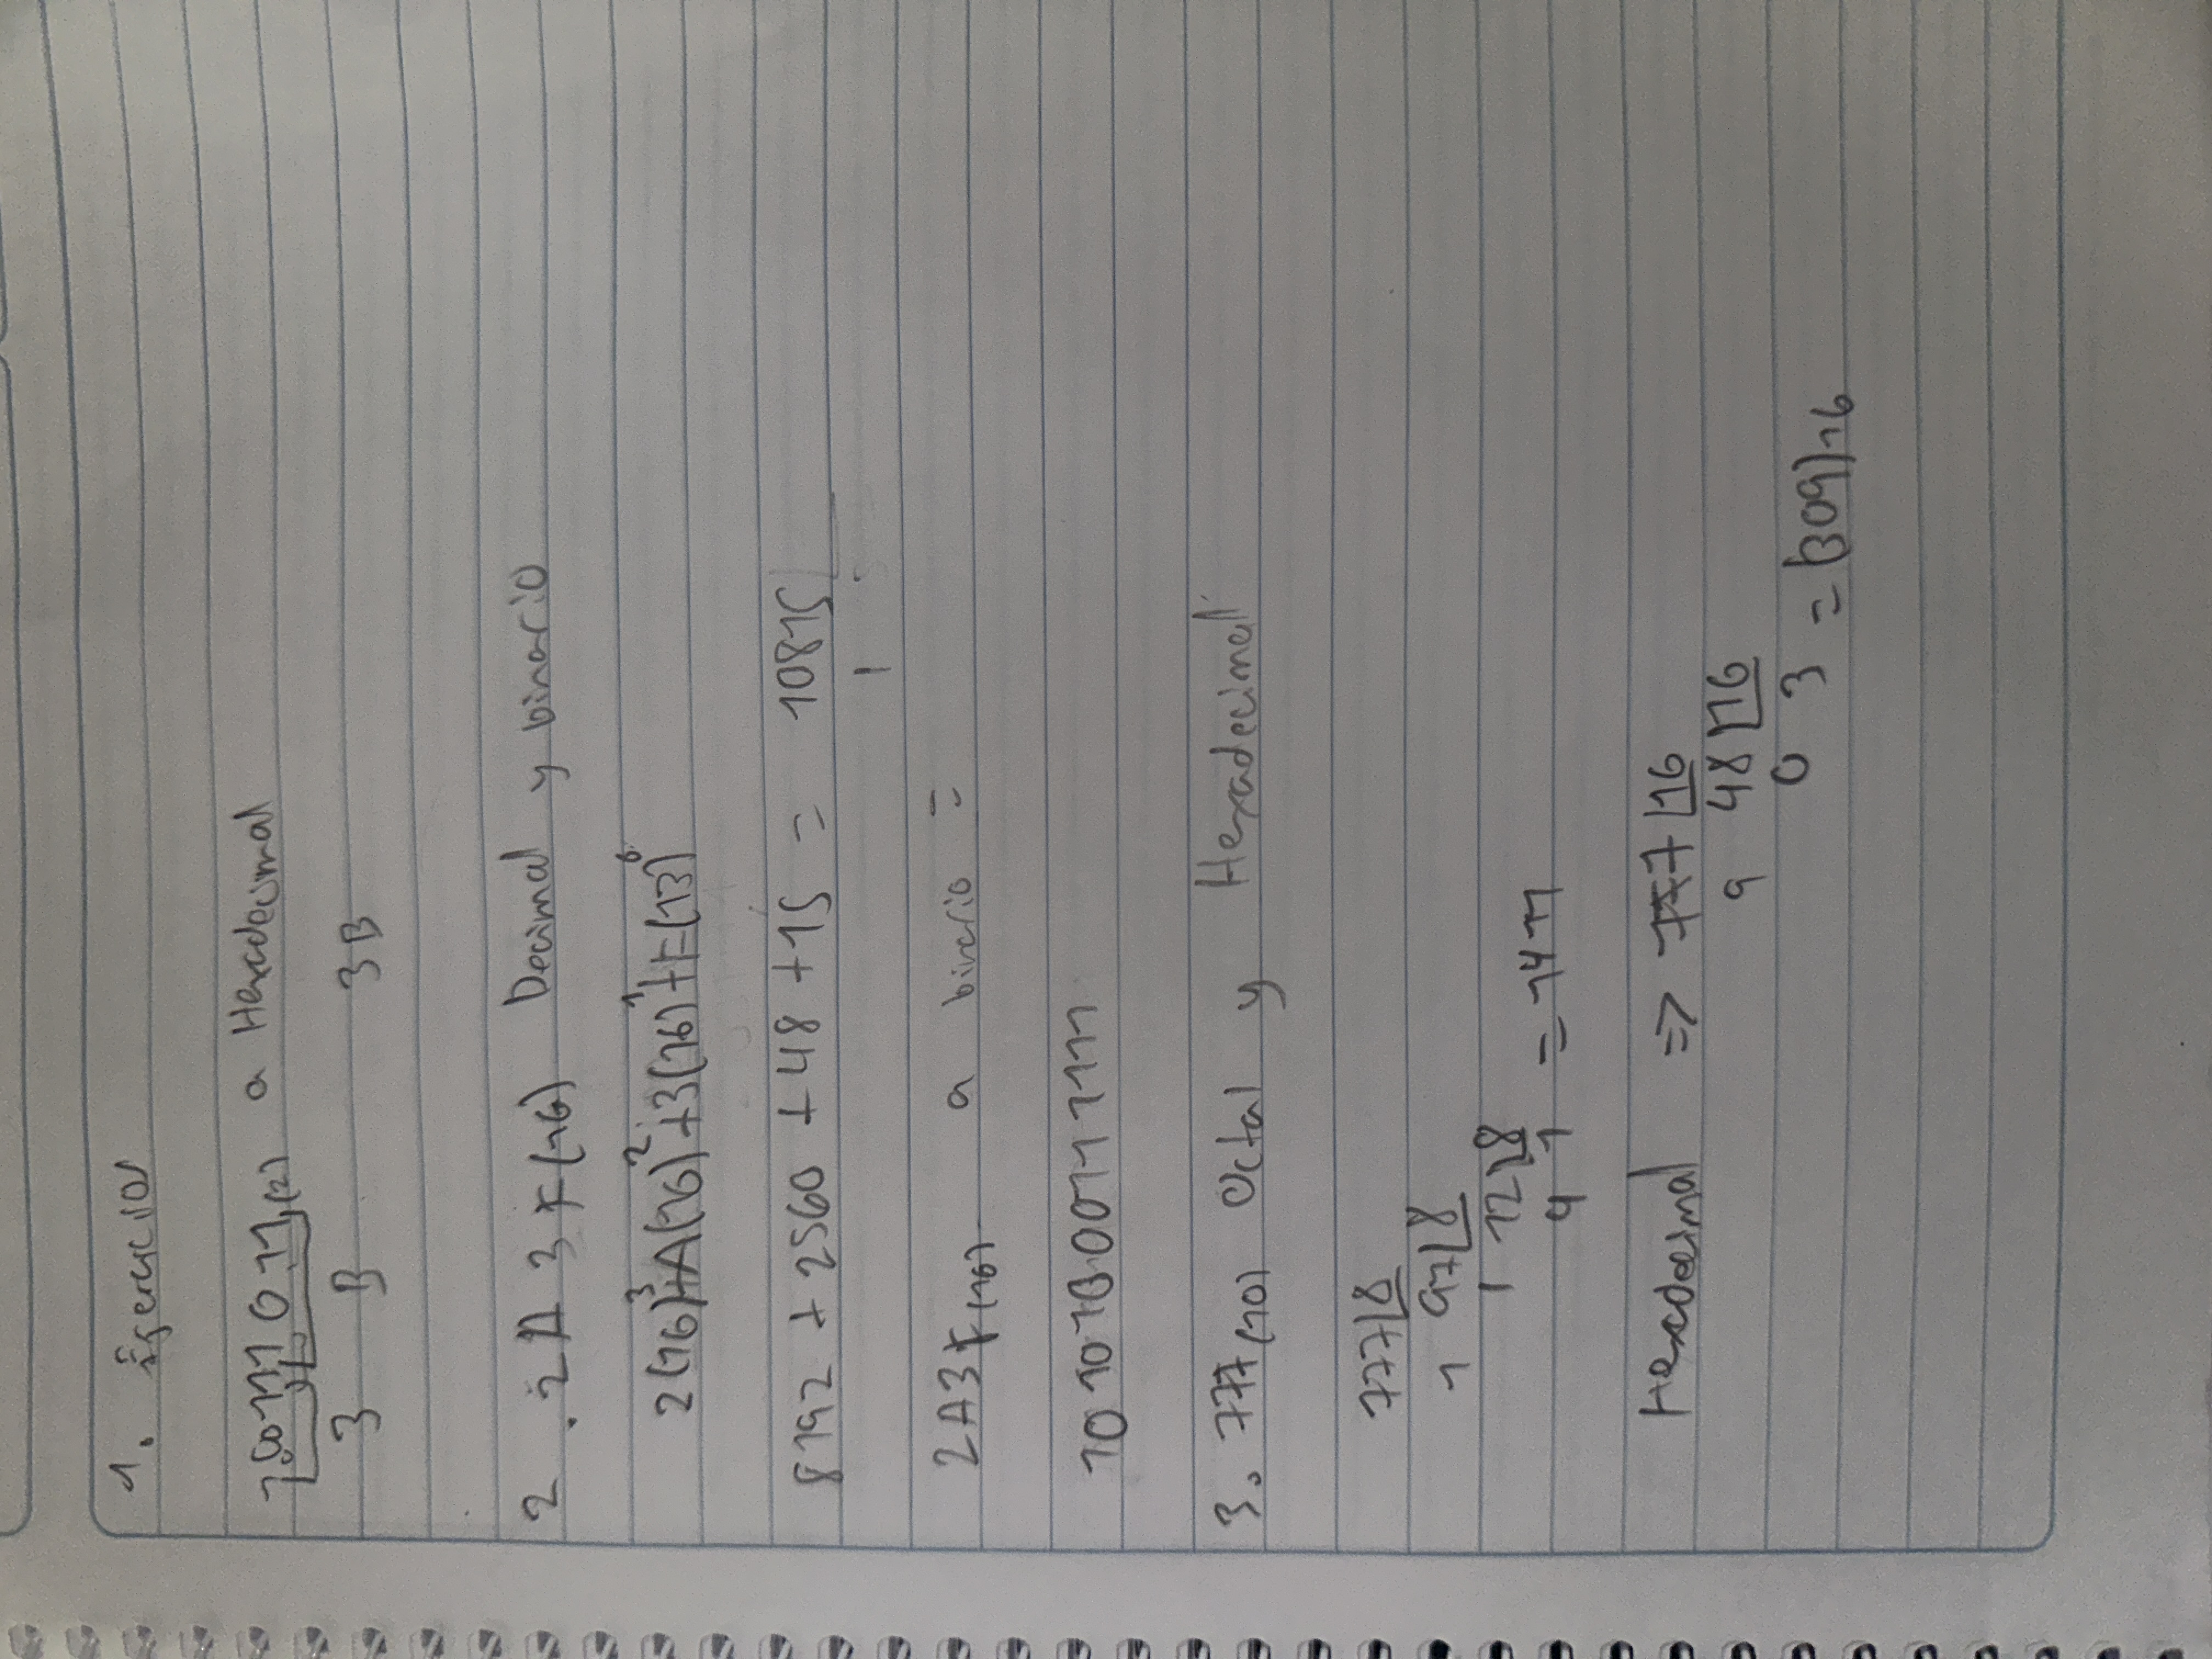 1. Ejercicios
100111011(2) a Hexadecimal
3 B 3B
2. 2A3F(16) Decimal y binario
2(16)³+A(16)²+3(16)¹+F(13)⁰
8192 + 2560 + 48 + 15 = 10815
2A3F(16) a binario =
10101000111111
3. 777(10) Octal y Hexadecimal
777 8
1 97 8
1 12 8
4 1 = 1411
Hexadecimal => 777 16
9 48 16
0 3 = (309)16